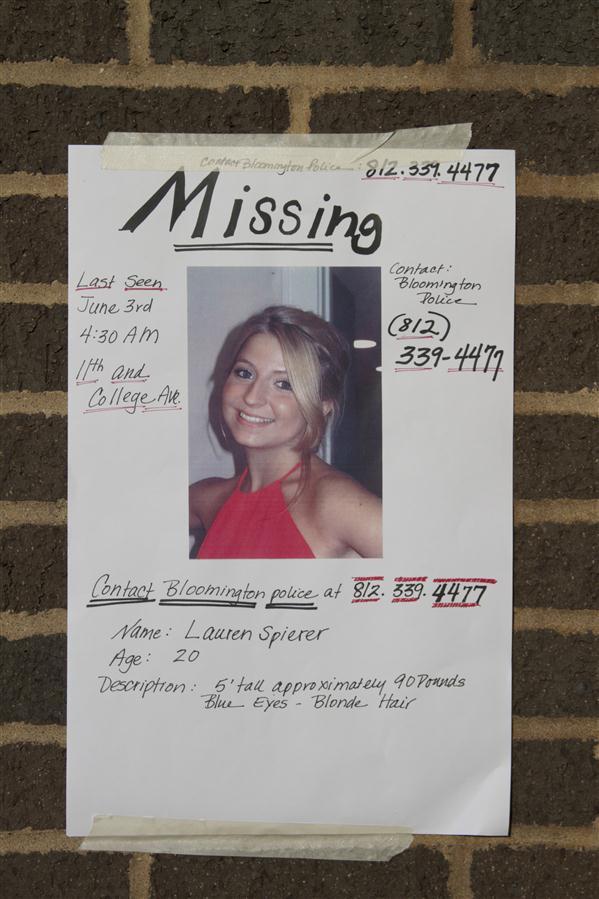 Contact Bloomington Police : 812.339.4477
Missing
Last Seen
June 3rd
4:30 AM
11th and
College Ave.
Contact:
Bloomington
Police
(812)
339-4477
Contact Bloomington police at 812.339.4477
Name: Lauren Spierer
Age: 20
Description: 5' tall approximately 90 Pounds
Blue Eyes - Blonde Hair